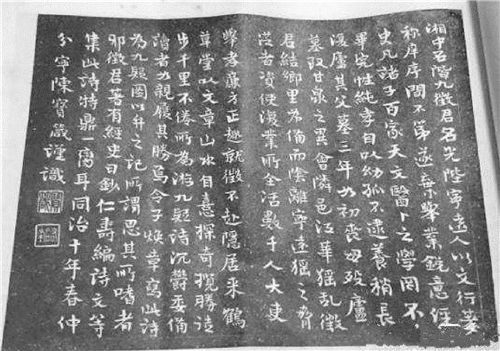 湘中石隱九徵君名光陛寧遠人以文行著
称庠序間不第遂弃舉業銳意經
史凡諸子百家天文醫卜之學罔不
畢究性純孝自以幼孤不逮養稍長
復廬其父墓三年如初喪母歿廬
墓致甘泉之異會隣邑江華猺亂徵
君結鄉里為備而陰離寧遠猺之脅
從者資使復業所全活數千人大吏
舉孝廉方正趣就徵不赴隱居采鶴
草堂以文章山水自憙探奇攬勝
步千里不倦所為游九疑詩沉鬱委備
讀者如親履其勝焉令子煥章寫此詩
為九疑圖以弁之記所謂思其所嗜者
邪徵君著有經史日鈔仁壽編詩文等
集此詩特鼎一臠耳同治十年春仲
分寧陳寶箴謹識